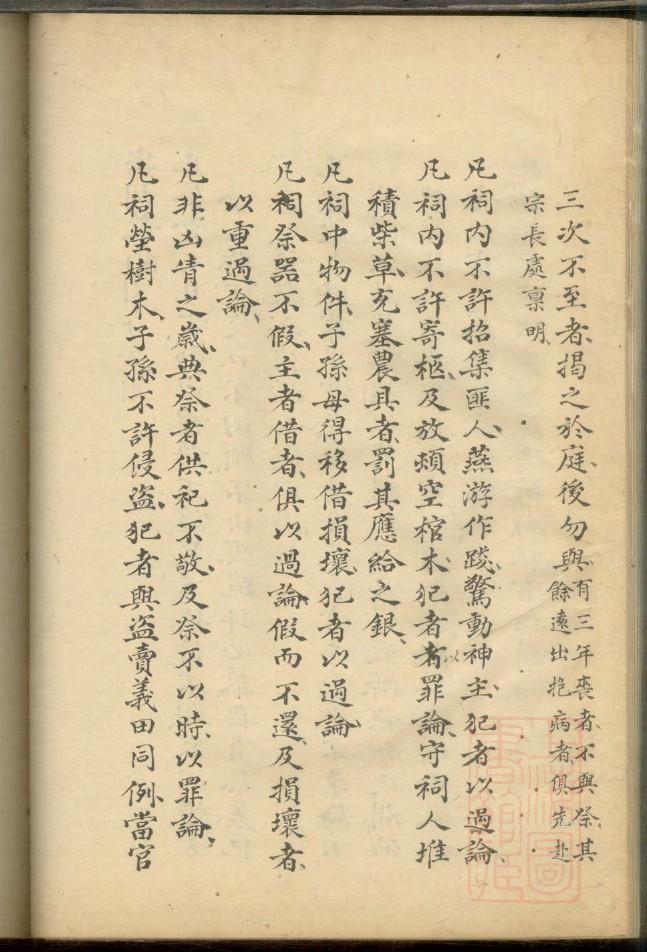 三次不至者揭之於庭後勿與有三年喪者不與祭其
餘遠出抱病者俱先赴
宗長處禀明
凡祠内不許招集匪人燕游作踐驚動神主犯者以過論
凡祠内不許寄柩及放頓空棺木犯者有以罪論守祠人堆
積柴草充塞農具者罰其應給之銀
凡祠中物件子孫毋得移借損壞犯者以過論
凡祠祭器不假主者借者俱以過論假而不還及損壞者
以重過論
凡非凶眚之歲典祭者供祀不敬及祭不以時以罪論
凡祠塋樹木子孫不許侵盜犯者與盜賣義田同例當官